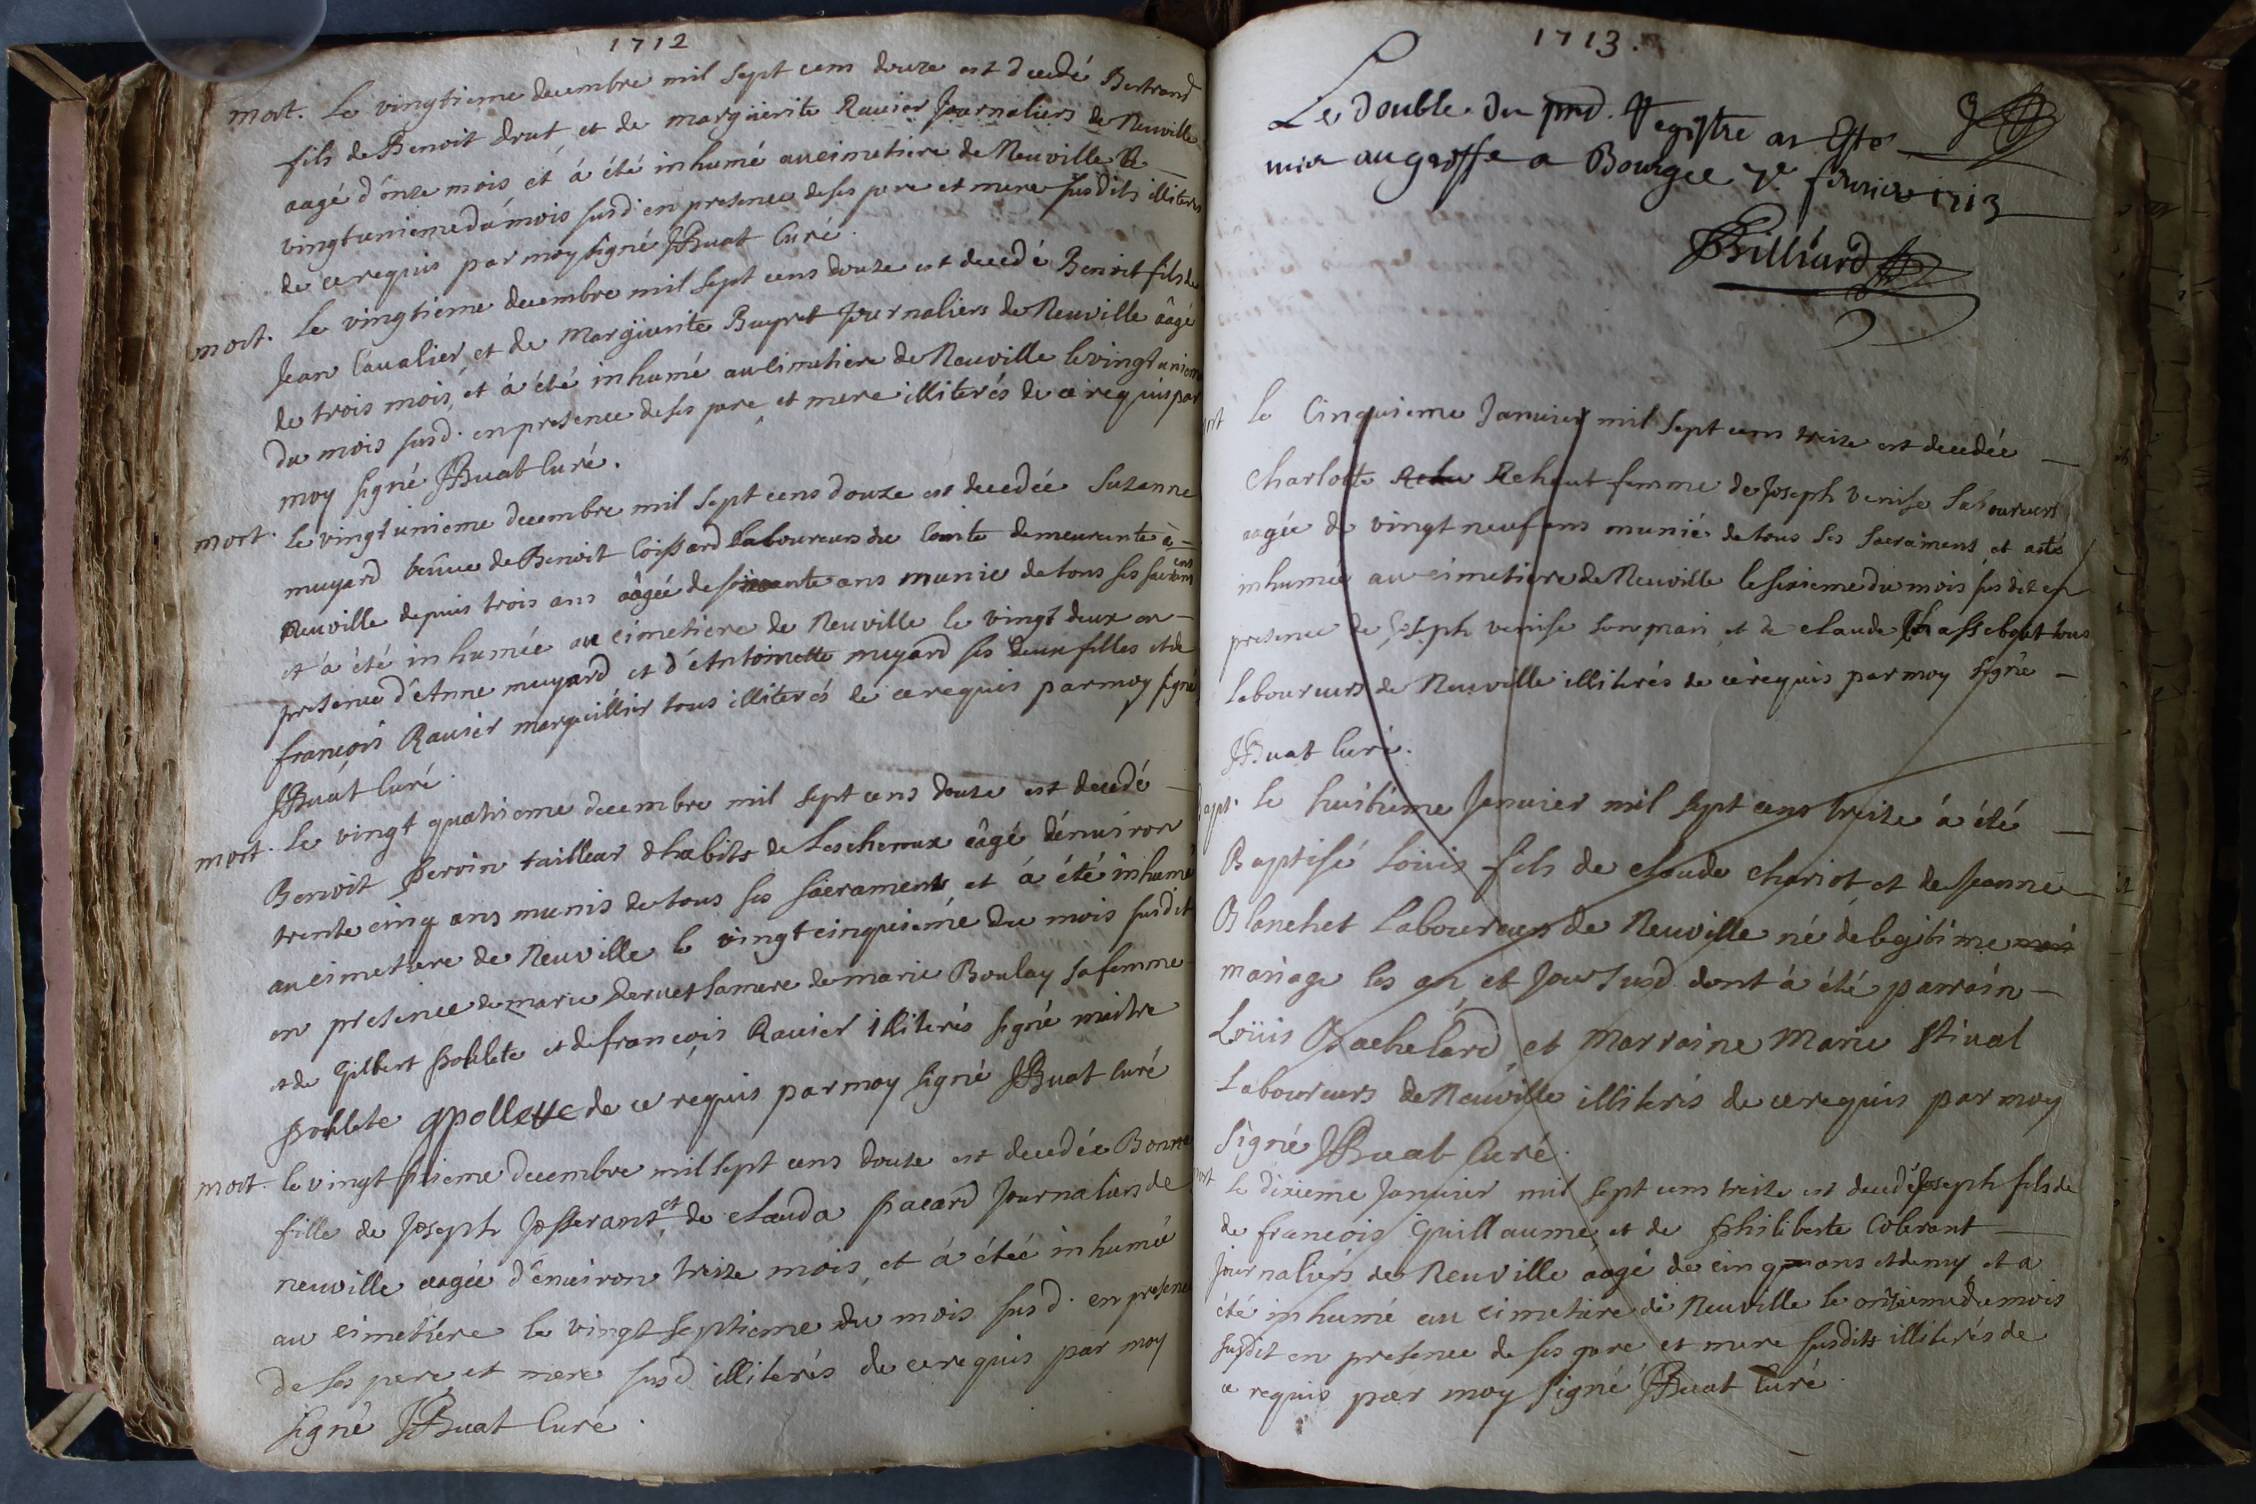 1712
mort. Le vingtieme decembre mil sept cens douze est decedé Bertrand
fils de Benoit drut, et de marguerite Ravier Journaliers de Neuville
aagé d'onze mois et à été inhumé au cimetiere de Neuville le
vingtunieme du mois susd. en presence de ses pere et mere susdits illiterés
de ce requis par moy signé JBuat Curé.
mort. Le vingtieme decembre mil sept cens douze est decedé Benoit fils de
Jean Cavalier, et de Marguerite Buyret Journaliers de Neuville âagé
de trois mois, et à été inhumé au Cimetiere de Neuville le vingtunieme
du mois susd. en presence de ses pere, et mere illiterés de ce requis par
moy signé JBuat Curé.
mort. Le vingtunieme decembre mil sept cens douze est decedée Suzanne
muyard veuve de Benoit Coissard Laboureurs du Comte demeurante à
Neuville depuis trois ans âagée de soixante ans munie de tous ses sacremens
et à été inhumée au cimetiere de Neuville le vingt deux en
presence d'Anne muyard et d'Antoinette muyard ses deux filles et de
françois Ravier marguillier tous illiterés de ce requis par moy signé
JBuat Curé.
mort. Le vingt quatrieme decembre mil sept cens douze est decedé
Benoit Pervin tailleur d'habits de Lescheroux âgé d'environ
trente cinq ans munis de tous ses sacremens et à été inhumé
au cimetiere de Neuville le vingtcinquieme du mois susdit
en presence de marie Deruet sa mere de marie Boulay sa femme
et de Gilbert Pohlete et de françois Ravier illiterés signé maistre
Pohlete GPollette de ce requis par moy signé JBuat Curé
mort. Le vingt sixieme decembre mil sept cens douze est decedée Bonne
fille de Joseph Josserant et de Clauda Pacard Journaliers de
neuville aagée d'environ treize mois, et à étée inhumée
au cimetiére le vingt septieme du mois susd. en presence
de ses pere, et mere susd illiterés de ce requis par moy
signé JBuat Curé.
1713.
Le double du pnd. Registre as Este
mis au greffe a Bourg le 7e. fevrier 1713
JBilliard
mort Le Cinquieme Janvier mil sept cens treize est decedée
Charlotte Rehu Rehaut femme de Joseph Venise Laboureurs
aagée de vingt neuf ans munie de tous ses sacrements et a etée
inhumée au cimetiere de Neuville le sixieme du mois susdit en
presence de Joseph venise son mari et de claude Chassebout tous
Laboureurs de Neuville illiterés de ce requis par moy signé
JBuat Curé.
Bapt. Le huitieme Janvier mil sept cens treize à été
Baptisé Loüis fils de claude chariot et de Jeanne
Blanchet Laboureurs de Neuville né de legitime mari
mariage les an et Jour susd. dont à été parrain
Loüis Bachelard et Marraine Marie Stival
Laboureurs de Neuville illiterés de ce requis par moy
signé JBuat Curé.
mort Le dixieme Janvier mil sept cens treize est decedé Joseph fils de
de francois Guillaume, et de Philiberte Coberant
Journaliers de Neuville aagé de cinq ans et demy et a
été inhumé au cimetiere de Neuville le onzieme du mois
susdit en presence de ses pere et mere susdits illiterés de
ce requis par moy signé JBuat Curé.